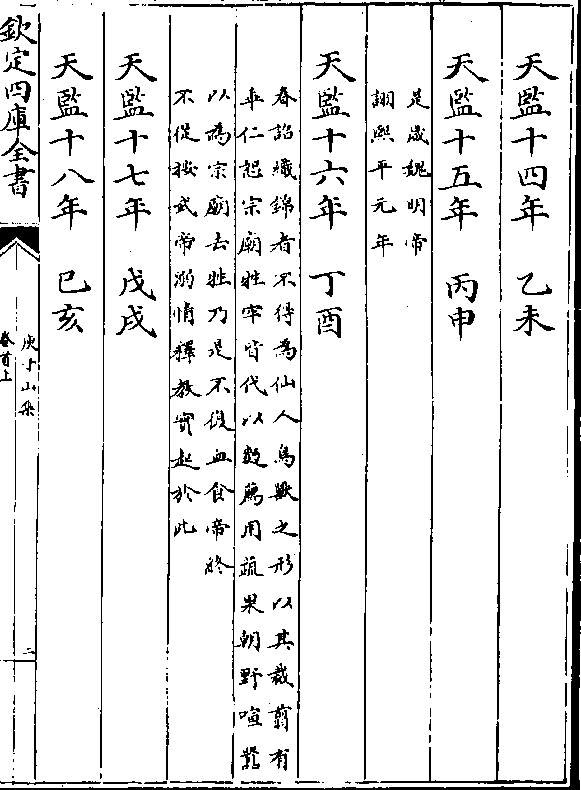 天監十四年　乙未
天監十五年　丙申
是歳魏明帝
詡熙平元年
天監十六年　丁酉
春詔織錦者不得為仙人鳥獸之形以其裁翦有
乖仁恕宗廟牲牢皆代以麫薦用蔬果朝野喧嚻
以為宗廟去牲乃是不復血食帝終
不從按武帝溺情釋教實起於此
天監十七年　戊戌
天監十八年　己亥
欽定四庫全書
庾子山集
卷首上
二